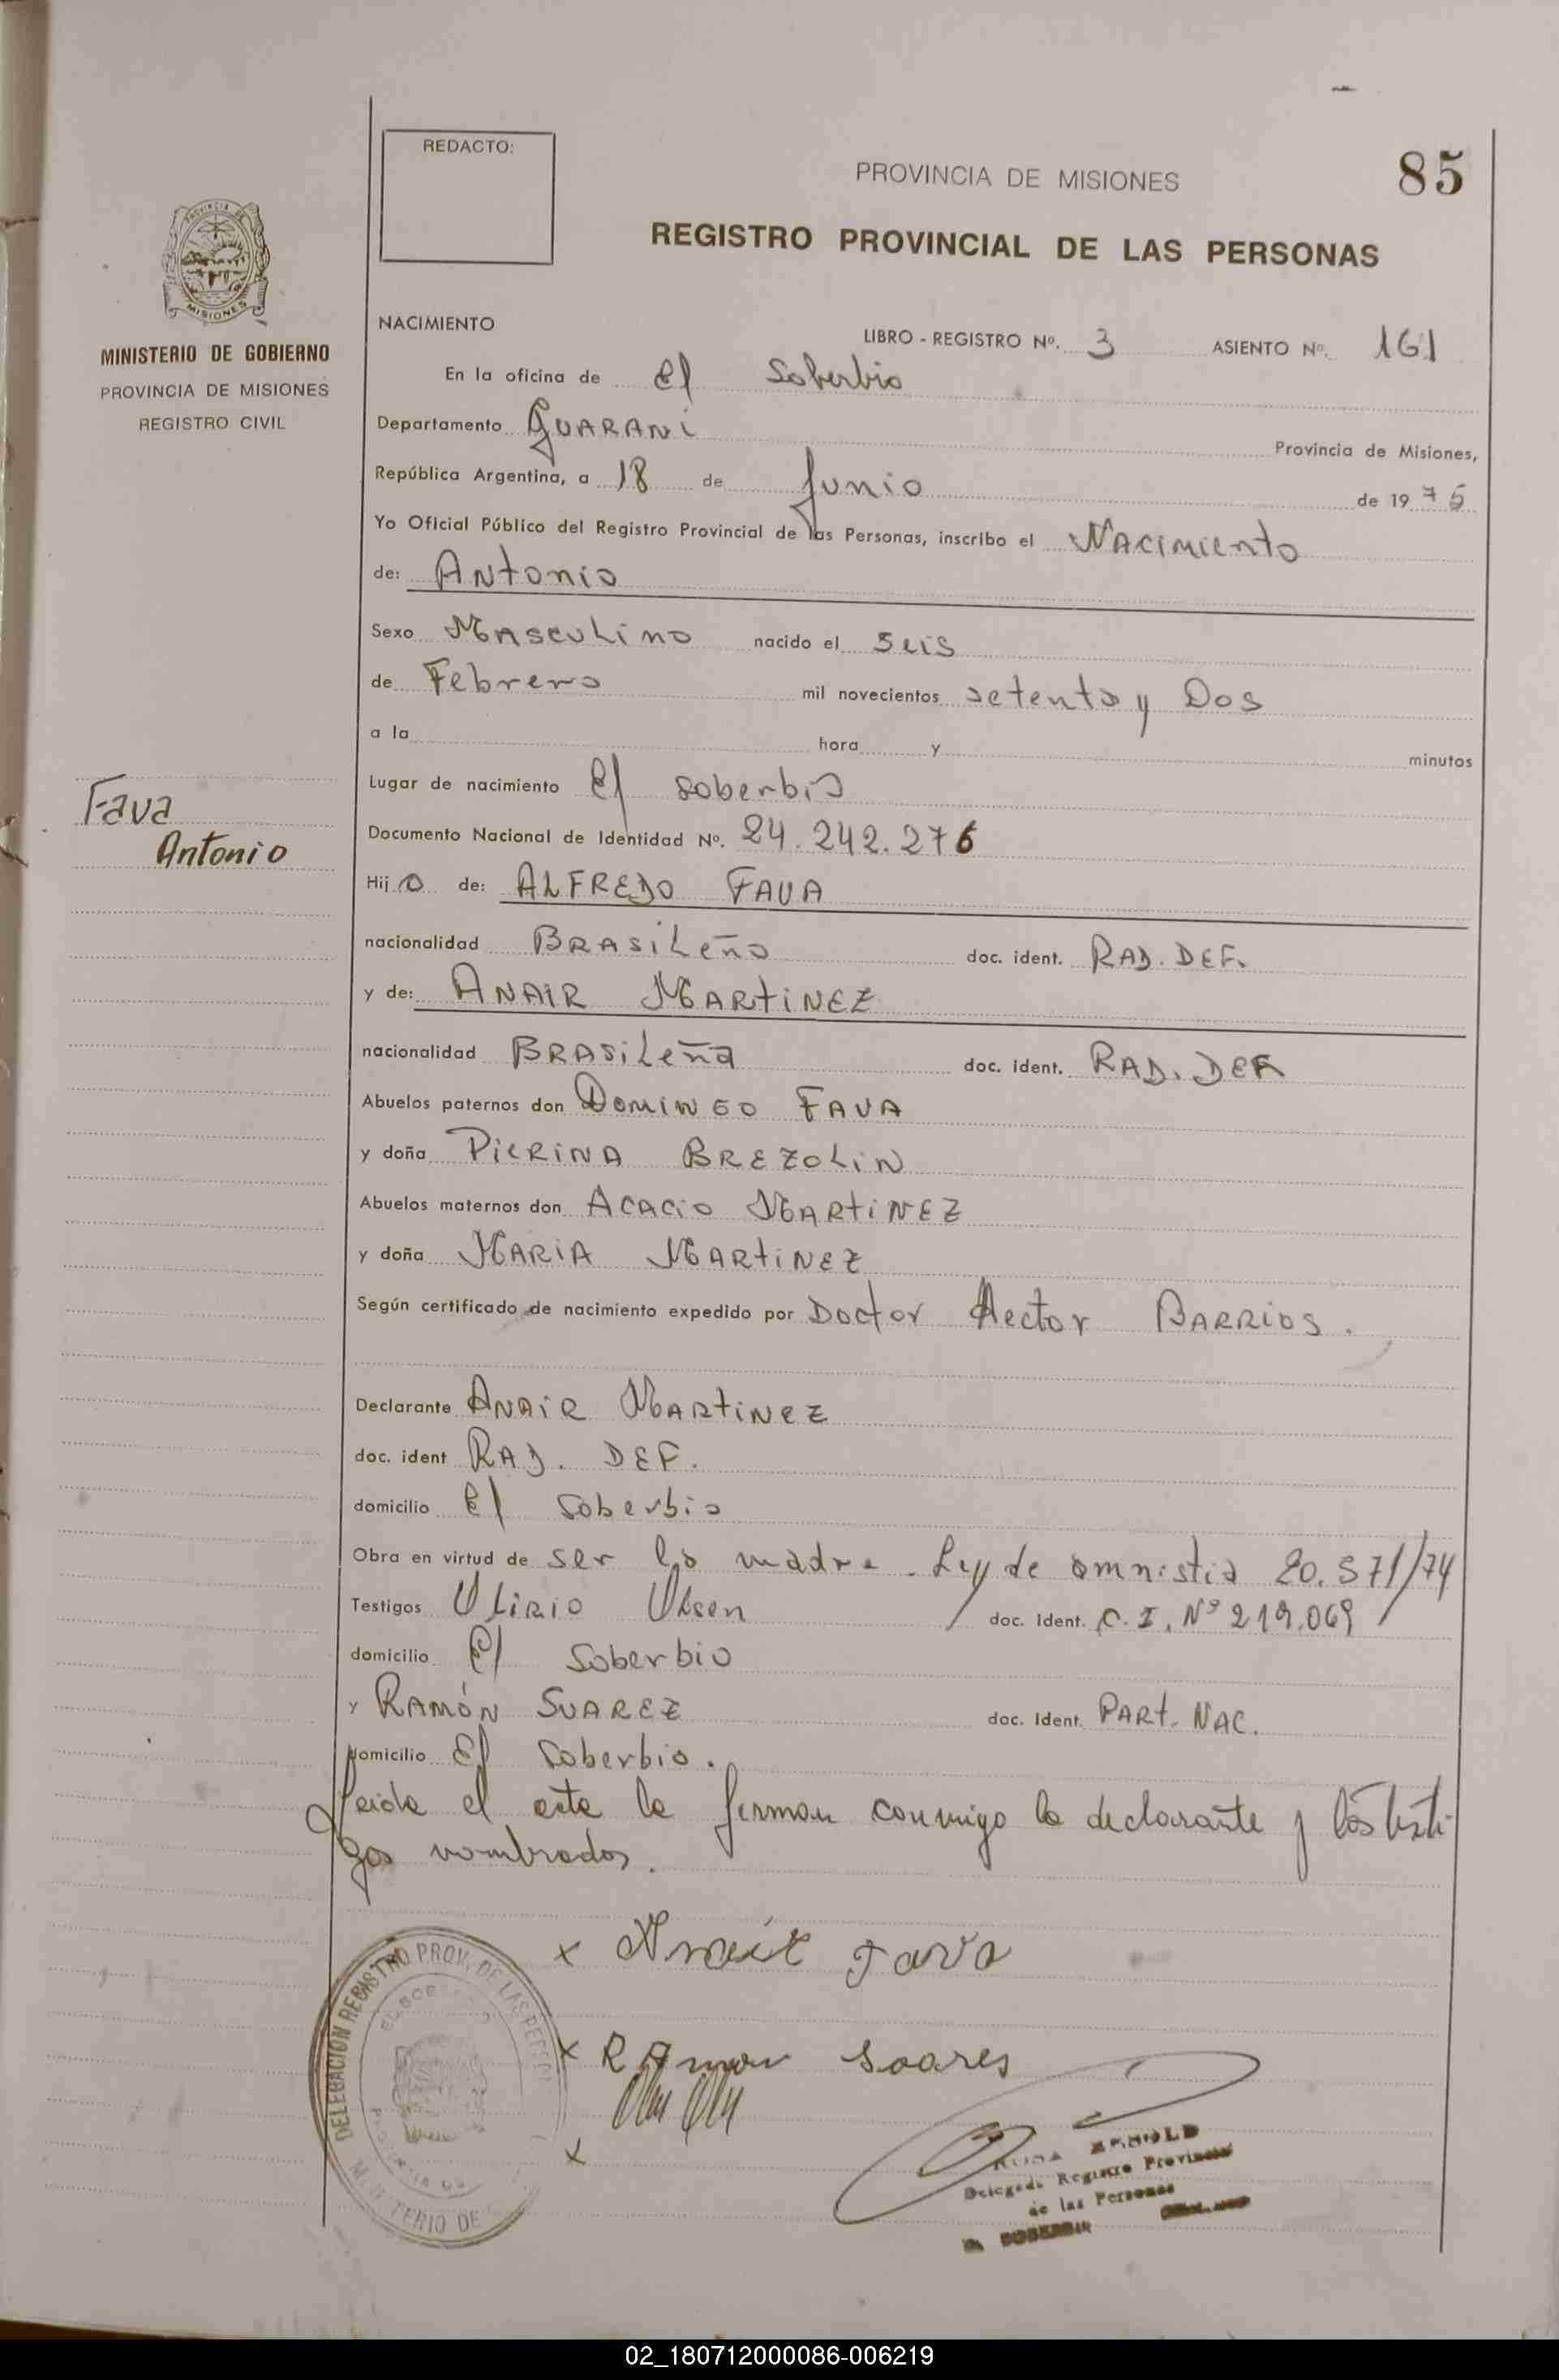 REDACTO:
PROVINCIA DE MISIONES
85
REGISTRO PROVINCIAL DE LAS PERSONAS
MISIONES
MINISTERIO DE GOBIERNO
PROVINCIA DE MISIONES
REGISTRO CIVIL
NACIMIENTO
LIBRO - REGISTRO Nº. 3 ASIENTO Nº. 161
En la oficina de El Soberbio
Departamento GUARANi
Provincia de Misiones,
República Argentina, a 18 de Junio de 1975
Yo Oficial Público del Registro Provincial de las Personas, inscribo el NACIMIENTO
de: ANtoNio
Sexo MASCULiNO nacido el SEIS
de Febrero mil novecientos setenta y Dos
a la hora y minutos
Lugar de nacimiento El Soberbio
Fava
Antonio
Documento Nacional de Identidad Nº. 24.242.276
Hijo de: ALFREDO FAVA
nacionalidad BRASiLeño doc. ident. RAD. DEF.
y de: ANAIR MARtiNEZ
nacionalidad BRASiLeña doc. ident. RAD. DEF
Abuelos paternos don DOMINGO FAVA
y doña PiERiNA BREZOLiN
Abuelos maternos don ACACiO MARtiNEZ
y doña MARiA MARtiNEZ
Según certificado de nacimiento expedido por Doctor Hector BARRIOS.
Declarante ANAiR MARtiNEZ
doc. ident RAD. DEF.
domicilio El Soberbio
Obra en virtud de ser la madre. Ley de amnistia 20.571/74
Testigos Olsen doc. Ident. C.I. Nº 219.069
domicilio El Soberbio
y RAMÓN SUAREZ doc. Ident. PARt. NAC.
domicilio El Soberbio.
Leida el acta la firman conmigo la declarante y los testi
gos nombrados.
x Anair Fava
x RAmon Soares
x
DELEGACION REGISTRO PROV. DE LAS
Delegada Registro Provincial
de las Personas
02_180712000086-006219